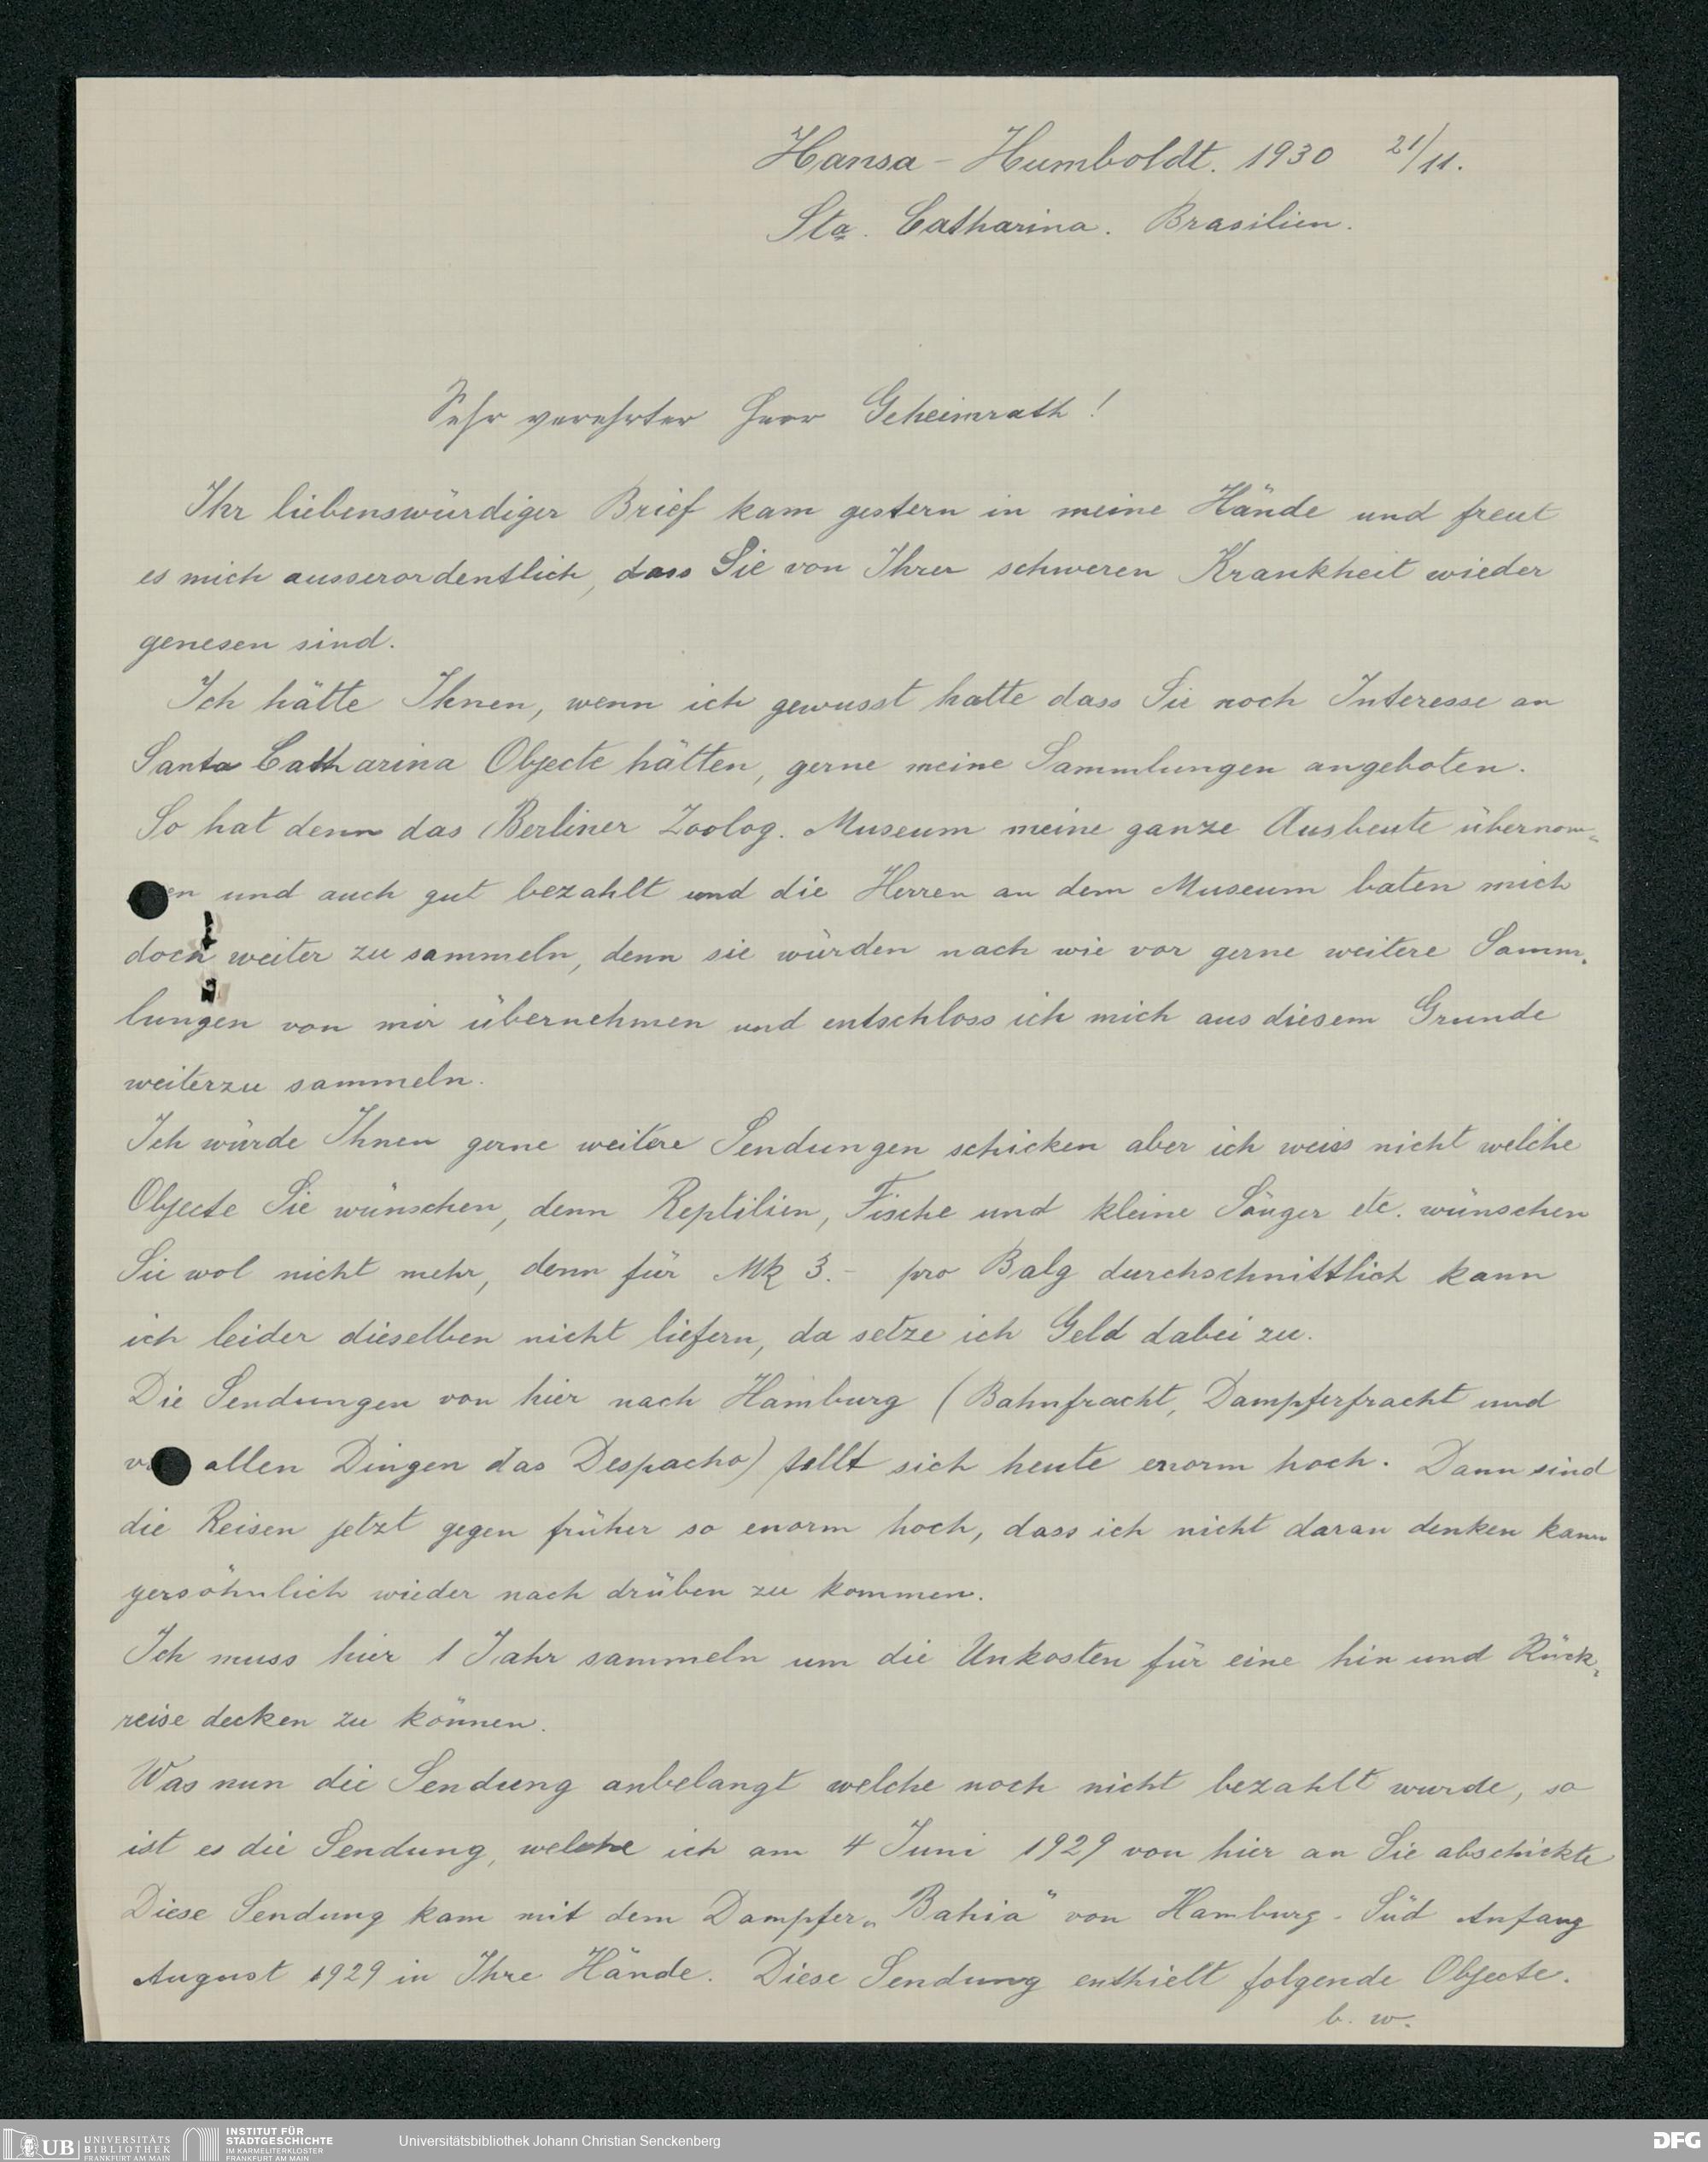 Hansa-Humboldt. 1930 21/11.
Sta. Catharina. Brasilien.
Sehr verehrter Herr Geheimrath!
Ihr liebenswürdiger Brief kam gestern in meine Hände und freut
es mich ausserordentlich, dass Sie von Ihrer schweren Krankheit wieder
genesen sind.
Ich hätte Ihnen, wenn ich gewusst hatte dass Sie noch Interesse an
Santa Catharina Objecte hätten, gerne meine Sammlungen angeboten.
So hat denn das Berliner Zoolog. Museum meine ganze Ausbeute übernom-
en und auch gut bezahlt und die Herren an dem Museum baten mich
doch weiter zu sammeln, denn sie würden nach wie vor gerne weitere Samm-
lungen von mir übernehmen und entschloss ich mich aus diesem Grunde
weiterzu sammeln.
Ich würde Ihnen gerne weitere Sendungen schicken aber ich weiss nicht welche
Objecte Sie wünschen, denn Reptilien, Fische und kleine Säuger etc. wünschen
Sie wol nicht mehr, denn für Mk 3.- pro Balg durchschnittlich kann
ich leider dieselben nicht liefern, da setze ich Geld dabei zu.
Die Sendungen von hier nach Hamburg (Bahnfracht, Dampferfracht und
v allen Dingen das Despacho) stellt sich heute enorm hoch. Dann sind
die Reisen jetzt gegen früher so enorm hoch, dass ich nicht daran denken kann
persöhnlich wieder nach drüben zu kommen.
Ich muss hier 1 Jahr sammeln um die Unkosten für eine hin und Rück-
reise decken zu können.
Was nun die Sendung anbelangt welche noch nicht bezahlt wurde, so
ist es die Sendung, welche ich am 4 Juni 1929 von hier an Sie abschickte
Diese Sendung kam mit dem Dampfer „Bahia" von Hamburg-Süd Anfang
August 1929 in Ihre Hände. Diese Sendung enthielt folgende Objecte.
b. w.
UB
UNIVERSITÄTS
BIBLIOTHEK
FRANKFURT AM MAIN
INSTITUT FÜR
STADTGESCHICHTE
IM KARMELITERKLOSTER
FRANKFURT AM MAIN
Universitätsbibliothek Johann Christian Senckenberg
DFG